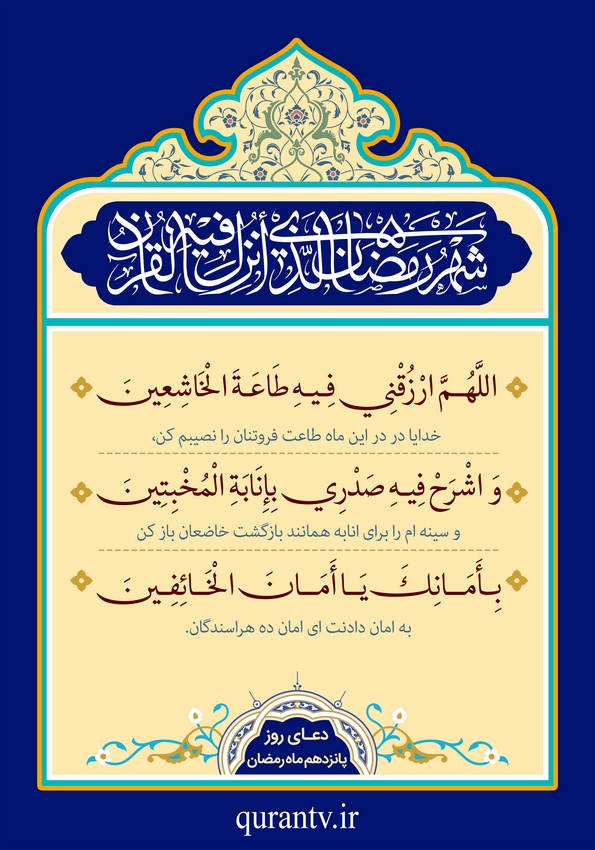 شهر رمضان الذی أنزل فیه القرآن
اللَّهُمَّ ارْزُقْنِي فِيهِ طَاعَةَ الْخَاشِعِينَ
خدایا در در این ماه طاعت فروتنان را نصیبم کن،
وَ اشْرَحْ فِيهِ صَدْرِي بِإِنَابَةِ الْمُخْبِتِينَ
و سینه ام را برای انابه همانند بازگشت خاضعان باز کن
بِأَمَانِكَ يَا أَمَانَ الْخَائِفِينَ
به امان دادنت ای امان ده هراسندگان.
دعای روز
پانزدهم ماه رمضان
qurantv.ir